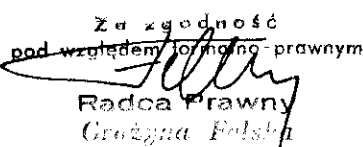 Za zgodność
pod względem formalno-prawnym
Radca Prawny
Grażyna Felska